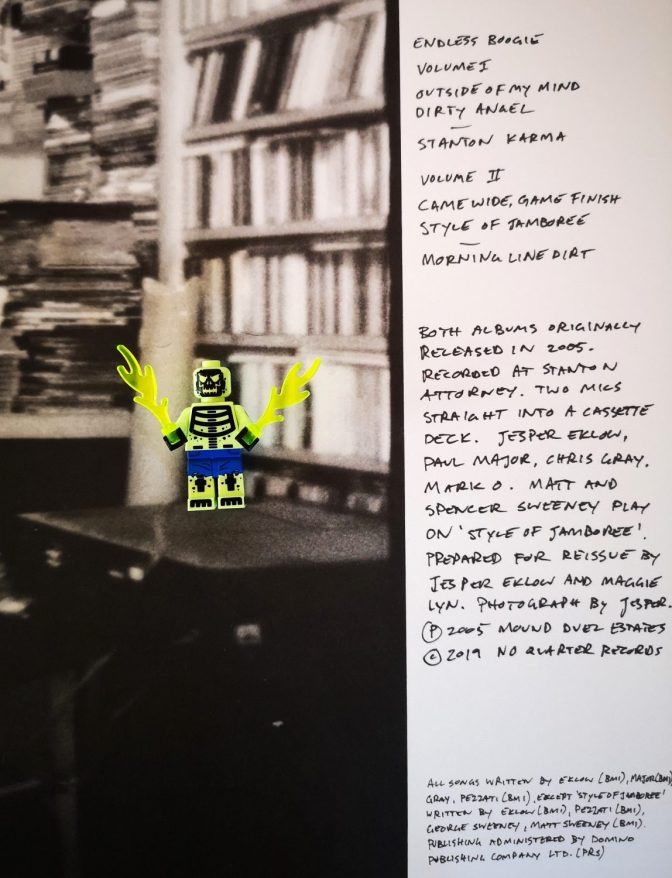 ENDLESS BOOGIE
VOLUME I
OUTSIDE OF MY MIND
DIRTY ANGEL
STANTON KARMA
VOLUME II
CAME WIDE, GAME FINISH
STYLE OF JAMBOREE
MORNING LINE DIRT
BOTH ALBUMS ORIGINALLY
RELEASED IN 2005.
RECORDED AT STANTON
ATTORNEY. TWO MICS
STRAIGHT INTO A CASSETTE
DECK. JESPER EKLOW,
PAUL MAJOR, CHRIS GRAY.
MARK O. MATT AND
SPENCER SWEENEY PLAY
ON 'STYLE OF JAMBOREE'.
PREPARED FOR REISSUE BY
JESPER EKLOW AND MAGGIE
LYN. PHOTOGRAPH BY JESPER.
Ⓟ 2005 MOUND DUEL ESTATES
© 2019 NO QUARTER RECORDS
ALL SONGS WRITTEN BY EKLOW (BMI), MAJOR (BMI)
GRAY, PEZZATI (BMI), EXCEPT 'STYLE OF JAMBOREE'
WRITTEN BY EKLOW (BMI), PEZZATI (BMI),
GEORGE SWEENEY, MATT SWEENEY (BMI).
PUBLISHING ADMINISTERED BY DOMINO
PUBLISHING COMPANY LTD. (PRS)